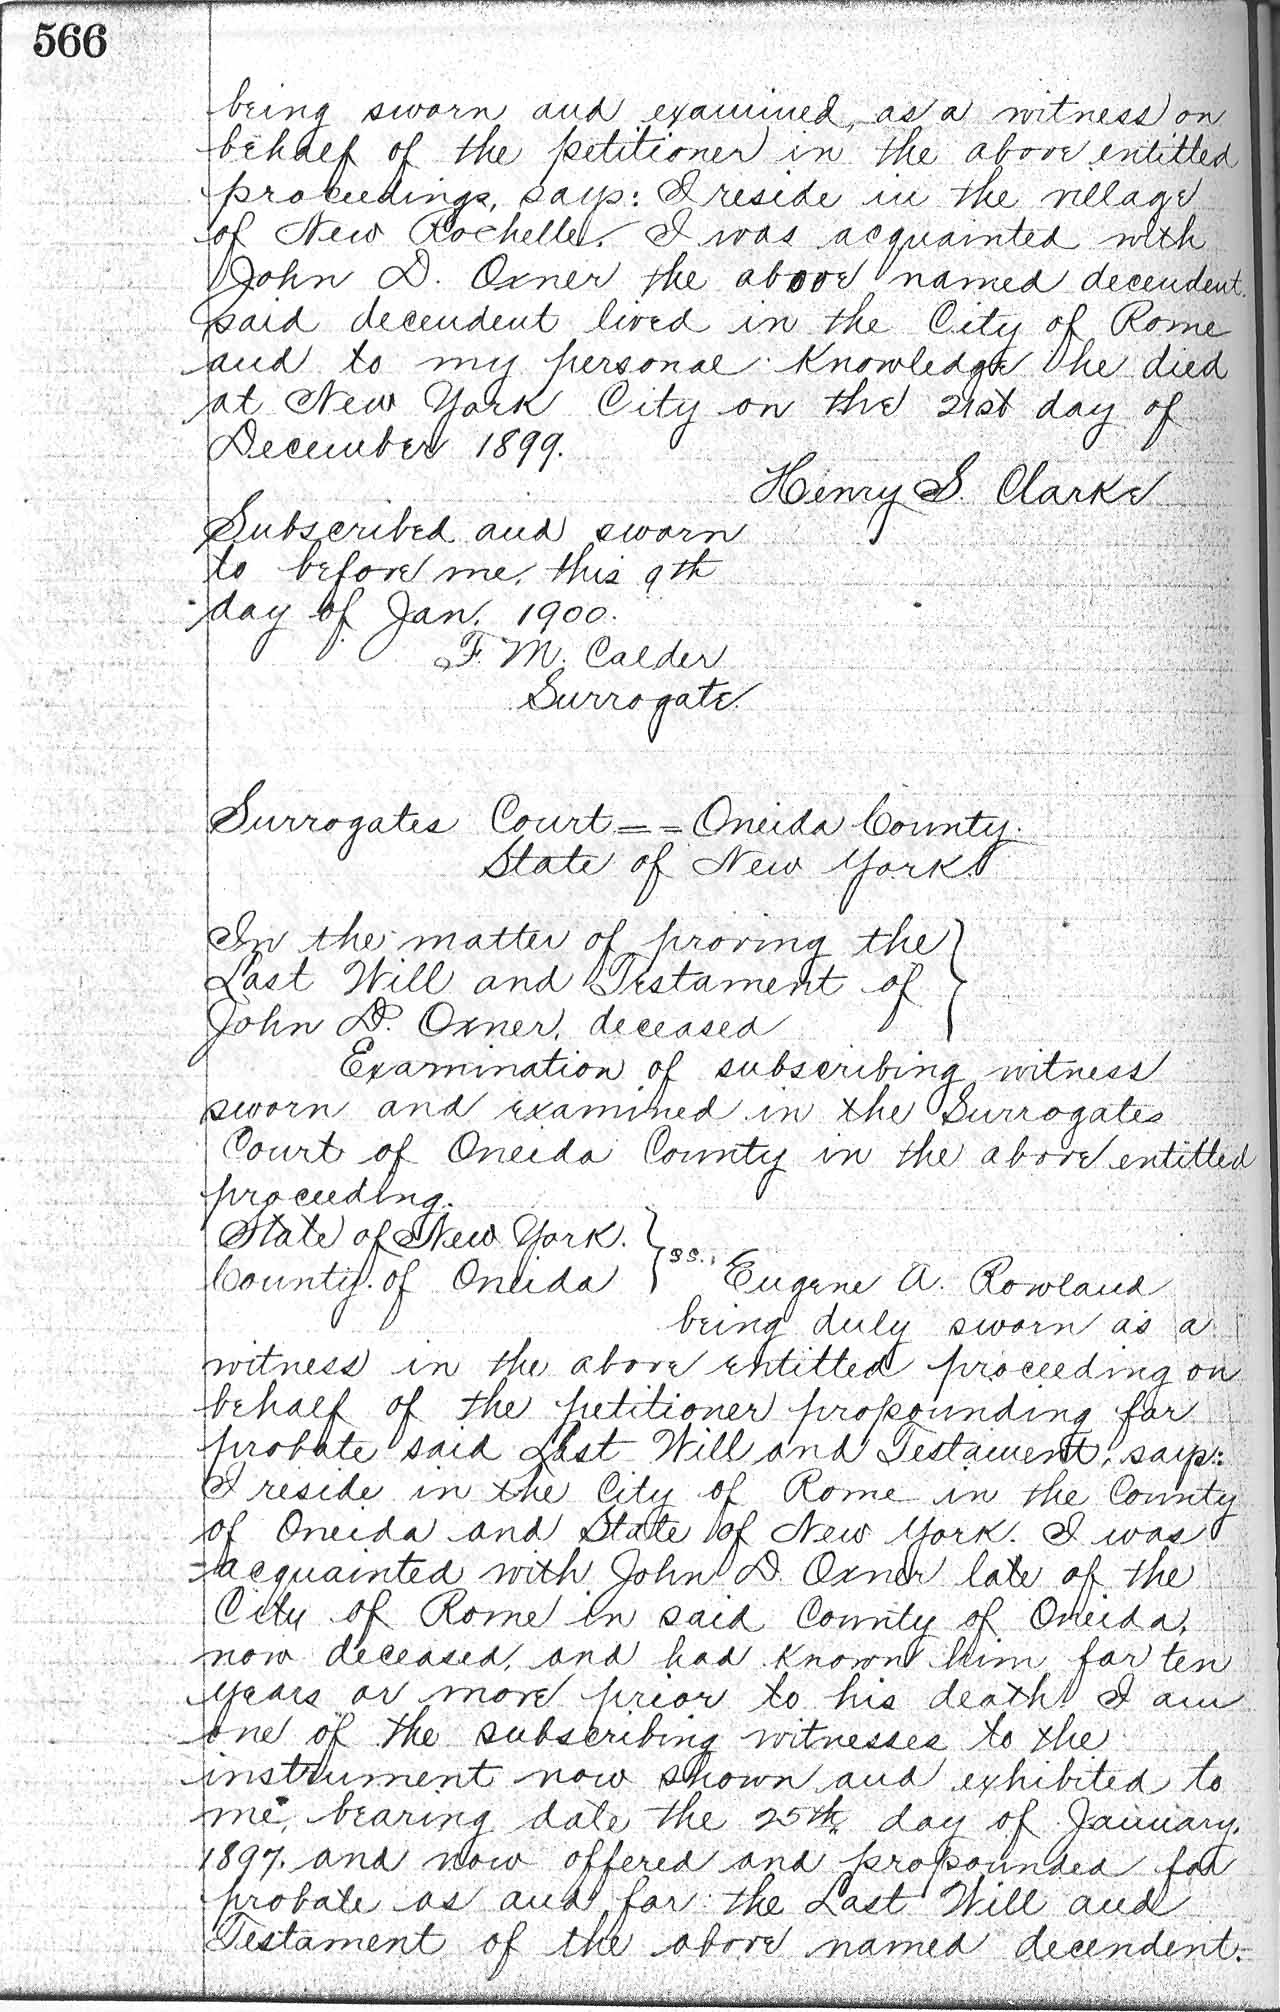 566
being sworn and examined, as a witness on
behalf of the petitioner in the above entitled
proceedings, says: I reside in the village
of New Rochelle. I was acquainted with
John D. Oxner the above named decendent.
said decendent lived in the City of Rome
and to my personal Knowledge he died
at New York City on the 21st day of
December 1899.
Henry S. Clarke
Subscribed and sworn
to before me, this 9th
day of Jan. 1900.
F. M. Calder
Surrogate.
Surrogates Court == Oneida County.
State of New York.
In the matter of proving the
Last Will and Testament of
John D. Oxner, deceased
Examination of subscribing witness
sworn and examined in the Surrogates
Court of Oneida County in the above entitled
proceeding.
State of New York.
County of Oneida } ss., Eugene A. Rowland
being duly sworn as a
witness in the above entitled proceeding on
behalf of the petitioner propounding for
probate said Last Will and Testament, says:
I reside in the City of Rome in the County
of Oneida and State of New York. I was
acquainted with John D. Oxner late of the
City of Rome in said County of Oneida,
now deceased, and had known him for ten
years or more prior to his death. I am
one of the subscribing witnesses to the
instrument now shown and exhibited to
me, bearing date the 25th day of January,
1897. and now offered and propounded for
probate as and for the Last Will and
Testament of the above named decendent.